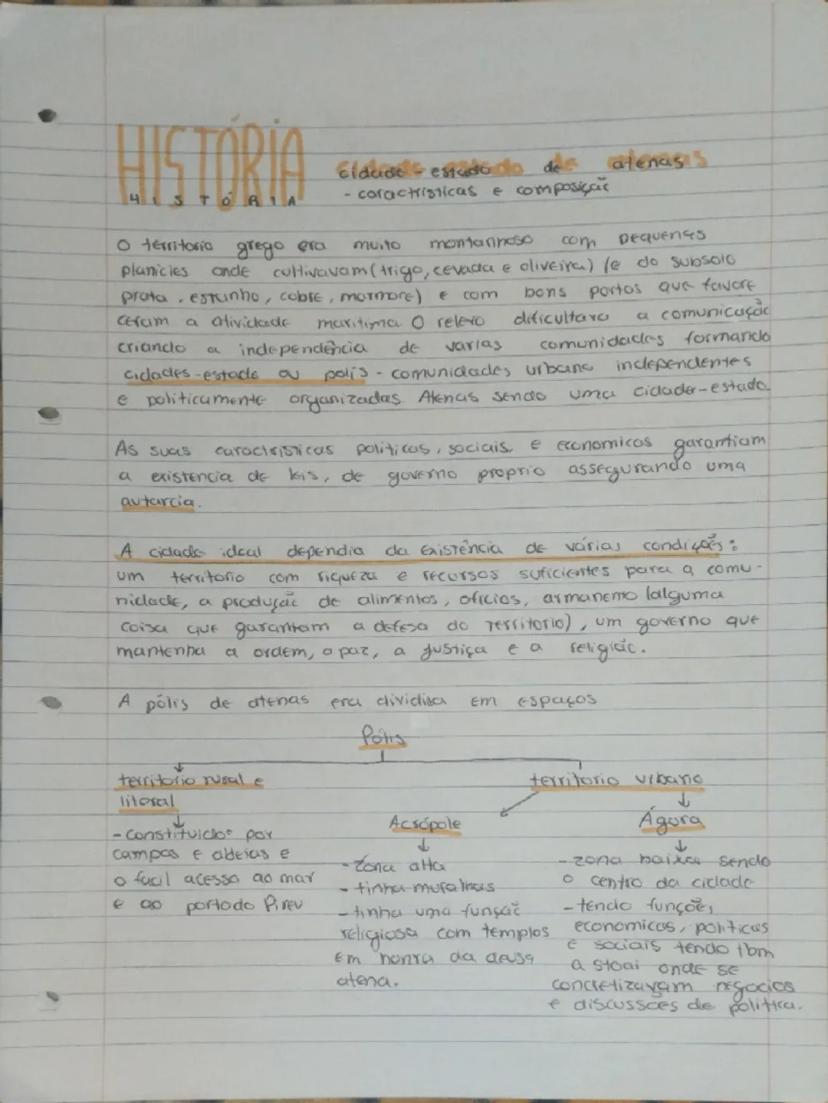 HISTÓRIA
HISTÓRIA
cidade-estado de atenas
- caractristicas e composição
O territorio grego era muito montanhoso com pequenas
planicies onde cultivavam (trigo, cevada e oliveira) (e do subsolo
prata, estanho, cobre, marmore) e com bons portos que favore
ceram a atividade maritima O relevo dificultava a comunicação
criando a independência de varias comunidades formando
cidades-estado ou polis - comunidades urbana independentes
e politicamente organizadas. Atenas sendo uma cidade-estado
As suas caractristicas politicas, sociais e economicas garantiam
a existencia de leis, de governo proprio assegurando uma
autarcia.
A cidade ideal dependia da existência de várias condições:
um territorio com riqueza e recursos suficientes para a comu-
nidade, a produção de alimentos, oficios, armamento (alguma
coisa que garantam a defesa do territorio), um governo que
mantenha a ordem, a paz, a justiça e a religião.
A pólis de atenas era dividida em espaços
Pólis
territorio rural e
litoral
- constituido por
campos e aldeias e
o facil acesso ao mar
e ao porto do Pireu
territorio urbano
Acrópole
- zona alta
- tinha muralhas
- tinha uma função
religiosa com templos
em honra da deusa
atena.
Ágora
- zona baixa sendo
o centro da cidade
- tendo funções
economicas, politicas
e sociais tendo tbm
a stoai onde se
concretizavam negocios
e discussões de politica.